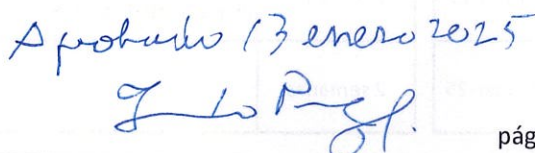 Aprobado 13 enero 2025
pág